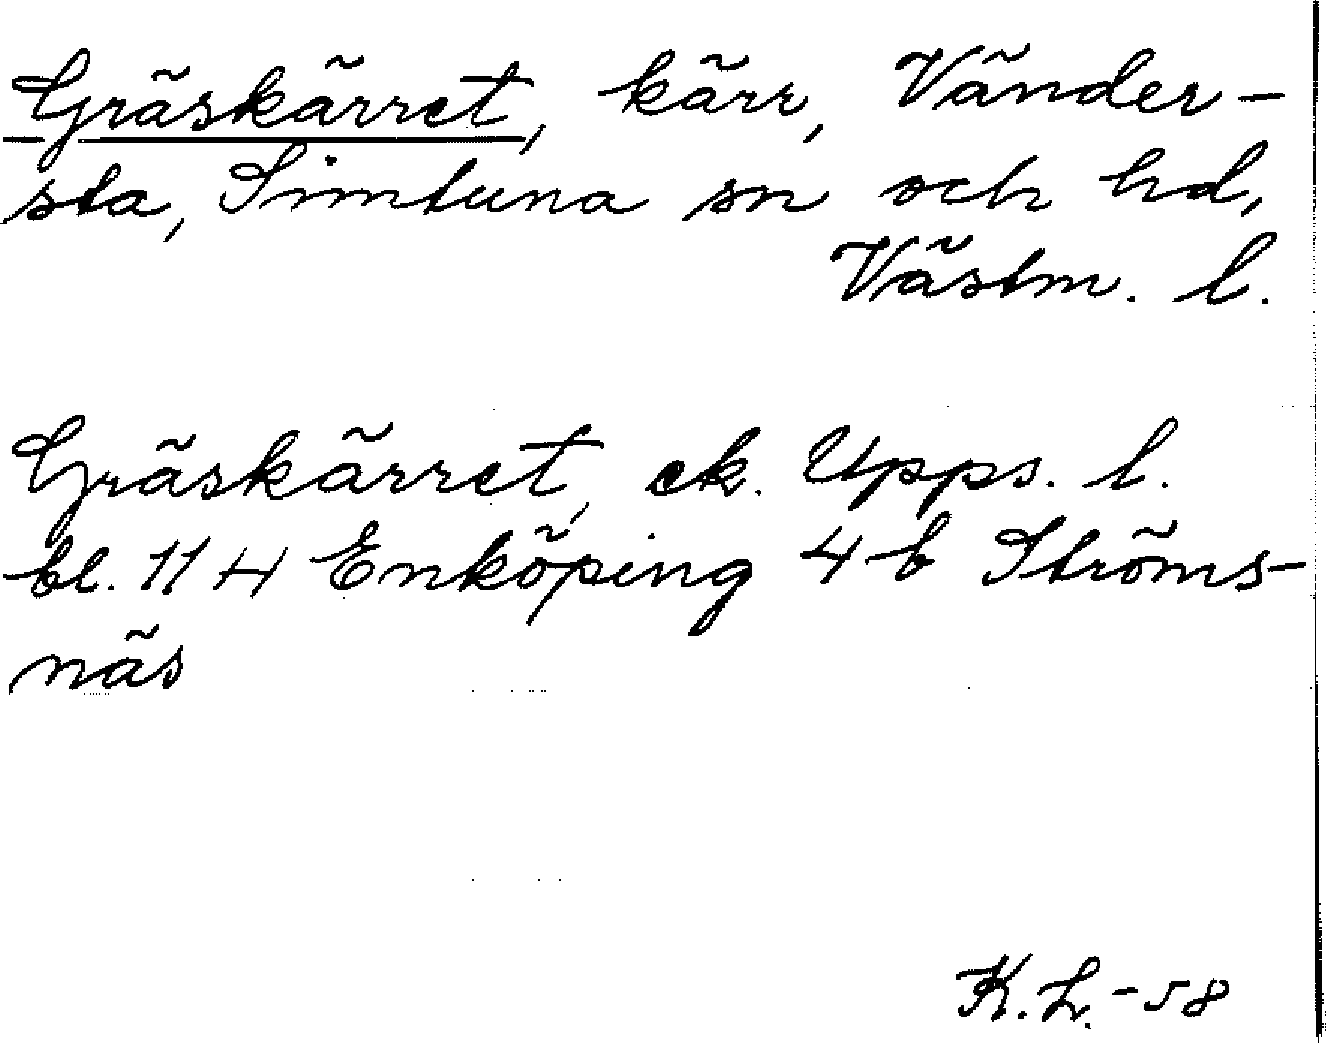 Gräskärret, kärr, Vänder-
sta, Simtuna sn och hd,
Västm. l.
Gräskärret, ek. Upps. l.
bl. 11 H Enköping 4 b Ströms-
näs
K.L.-58